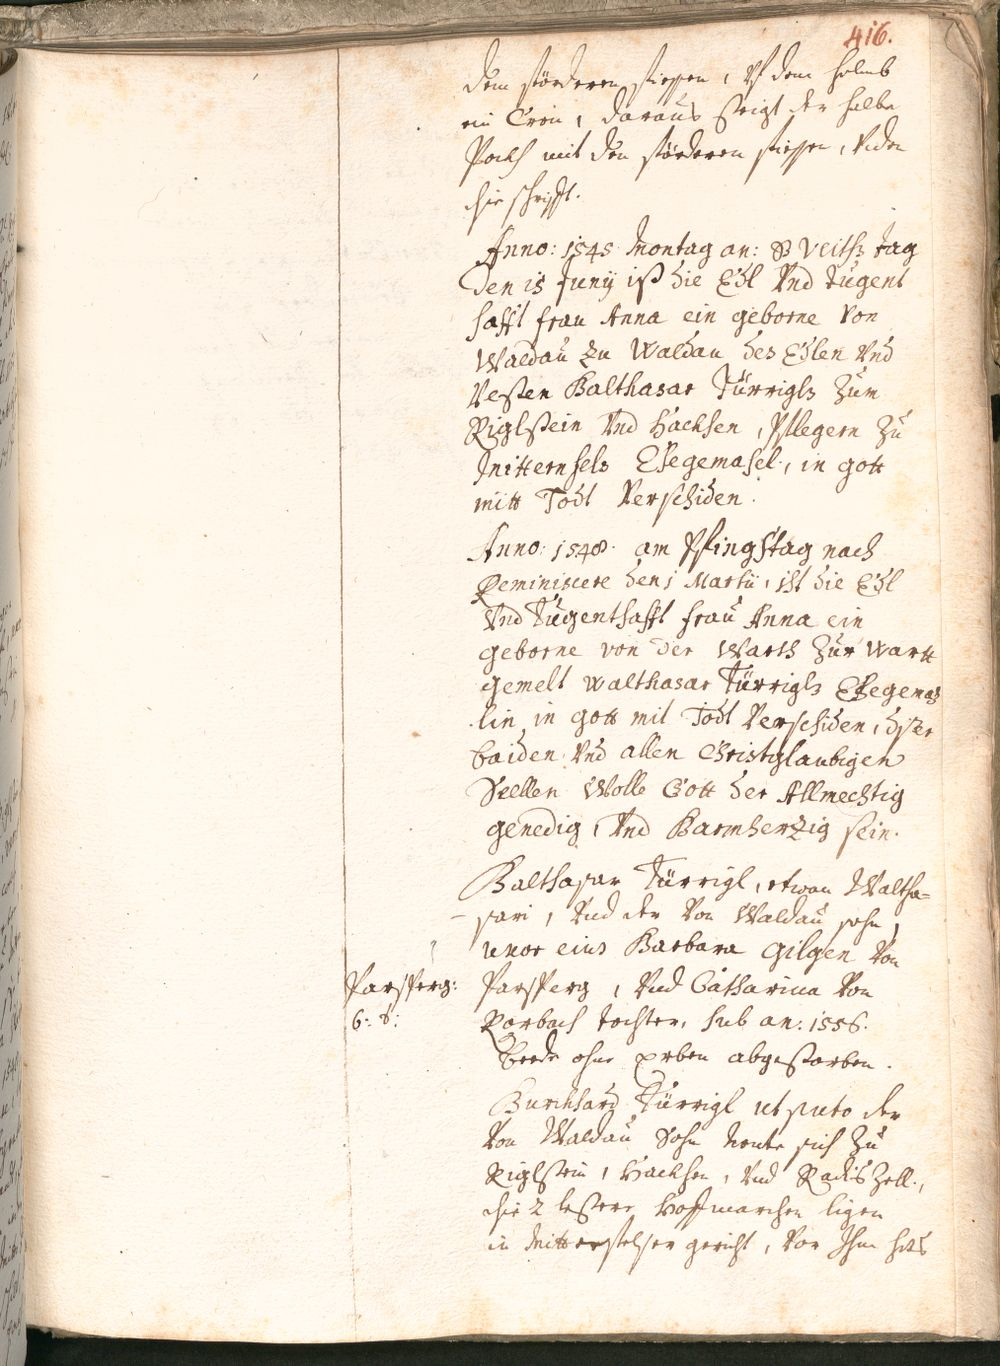 416.
dem förderen fiessen, uf dem helmb
ein Cron, daraus steigt der halbe
Pockh mit den förderen fiessen, under
die schrifft.
Anno: 1545 Montag an: S Veiths tag
den 15 Juny ist die Edl Und Tugent
hafft frau Anna ein geborne Von
Waldau Zu Waldau des Edlen Und
Vesten Balthasar Türrigls Zum
Riglstein Und Hackhen, Pflegern Zu
Mitternfels Ehegemahel, in gott
mitt Todt Verschiden.
Anno: 1548 am Pfingstag nach
Reminiscere den 1 Martii, ist die Edl
Und Tugenthafft frau Anna ein
geborne von der Warth Zur Wartt
gemelt Walthasar Türrigls Ehegemah
lin in gott mit Todt Verschiden, diser
baiden Und allen Christglaubigen
Seellen Wolle Gott der Allmechtig
genedig, Und Barmherzig sein.
Balthasar Türrigl, etwan Waltha-
sari, Und der Von Waldau sohn,
uxor eius Barbara Gilgen Von
Parsperg: Parsperg, Und Catharina Von
6: 8: Rorbach tochter, sub an: 1556.
Beede ohne erben abgestorben.
Burckhard Türrigl ut puto der
Von Waldau Sohn nente sich Zu
Riglstein, Hackhen, Und RadisZell,
die 2 lestere Hoffmarchen ligen
in Mitterfelser gericht, Von Ihm hats